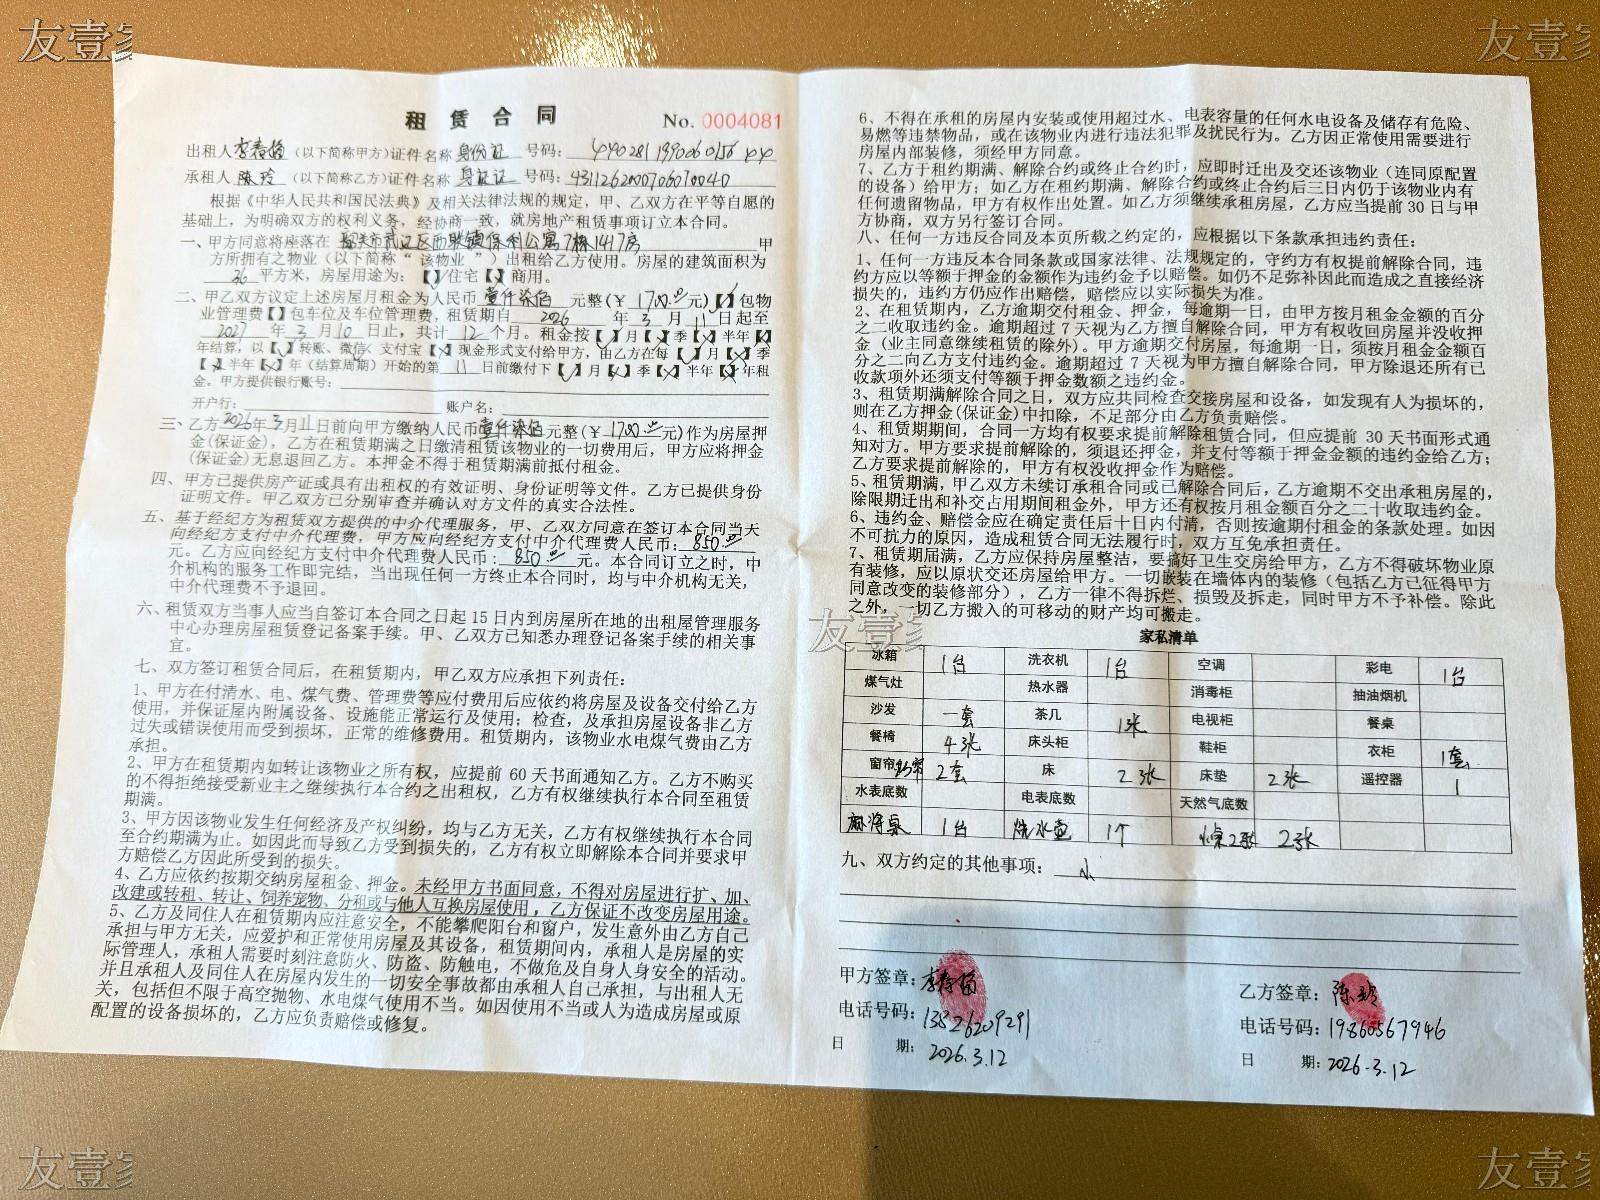 友壹家
友壹家
租赁合同
No. 0004081
出租人 李春 (以下简称甲方)证件名称 身份证 号码:
承租人 陈玲 (以下简称乙方)证件名称 身份证 号码: 431126200706070040
根据《中华人民共和国民法典》及相关法律法规的规定,甲、乙双方在平等自愿的
基础上,为明确双方的权利义务,经协商一致,就房地产租赁事项订立本合同。
一、甲方同意将座落在 韶关市武江区西联镇保利公寓7栋1417房 甲
方所拥有之物业(以下简称“该物业”)出租给乙方使用。房屋的建筑面积为
36 平方米,房屋用途为:【√】住宅【 】商用。
二、甲乙双方议定上述房屋月租金为人民币 壹仟柒佰 元整(¥ 1700.00元)【√】包物
业管理费【】包车位及车位管理费,租赁期自 2026 年 3 月 11 日起至
2027 年 3 月 10 日止,共计 12 个月。租金按【√】月【×】季【×】半年【×】
年结算,以【√】转账、微信、支付宝【】现金形式支付给甲方,由乙方在每【√】月【×】季
【×】半年【×】年(结算周期)开始的第 11 日前缴付下【√】月【×】季【×】半年【×】年租
金。甲方提供银行账号:
开户行: 账户名:
三、乙方 2026年 3月11日前向甲方缴纳人民币壹仟柒佰元整(¥ 1700.00元)作为房屋押
金(保证金),乙方在租赁期满之日缴清租赁该物业的一切费用后,甲方应将押金
(保证金)无息退回乙方。本押金不得于租赁期满前抵付租金。
四、甲方已提供房产证或具有出租权的有效证明、身份证明等文件。乙方已提供身份
证明文件。甲乙双方已分别审查并确认对方文件的真实合法性。
五、基于经纪方为租赁双方提供的中介代理服务,甲、乙双方同意在签订本合同当天
向经纪方支付中介代理费,甲方应向经纪方支付中介代理费人民币: 850.00
元。乙方应向经纪方支付中介代理费人民币: 850.00 元。本合同订立之时,中
介机构的服务工作即完结,当出现任何一方终止本合同时,均与中介机构无关,
中介代理费不予退回。
六、租赁双方当事人应当自签订本合同之日起 15 日内到房屋所在地的出租屋管理服务
中心办理房屋租赁登记备案手续。甲、乙双方已知悉办理登记备案手续的相关事
宜。
七、双方签订租赁合同后,在租赁期内,甲乙双方应承担下列责任:
1、甲方在付清水、电、煤气费、管理费等应付费用后应依约将房屋及设备交付给乙方
使用,并保证屋内附属设备、设施能正常运行及使用;检查,及承担房屋设备非乙方
过失或错误使用而受到损坏,正常的维修费用。租赁期内,该物业水电煤气费由乙方
承担。
2、甲方在租赁期内如转让该物业之所有权,应提前 60 天书面通知乙方。乙方不购买
的不得拒绝接受新业主之继续执行本合约之出租权,乙方有权继续执行本合同至租赁
期满。
3、甲方因该物业发生任何经济及产权纠纷,均与乙方无关,乙方有权继续执行本合同
至合约期满为止。如因此而导致乙方受到损失的,乙方有权立即解除本合同并要求甲
方赔偿乙方因此所受到的损失。
4、乙方应依约按期交纳房屋租金、押金。未经甲方书面同意,不得对房屋进行扩、加、
改建或转租、转让、饲养宠物、分租或与他人互换房屋使用,乙方保证不改变房屋用途。
5、乙方及同住人在租赁期内应注意安全,不能攀爬阳台和窗户,发生意外由乙方自己
承担与甲方无关,应爱护和正常使用房屋及其设备,租赁期间内,承租人是房屋的实
际管理人,承租人需要时刻注意防火、防盗、防触电,不做危及自身人身安全的活动。
并且承租人及同住人在房屋内发生的一切安全事故都由承租人自己承担,与出租人无
关,包括但不限于高空抛物、水电煤气使用不当。如因使用不当或人为造成房屋或原
配置的设备损坏的,乙方应负责赔偿或修复。
6、不得在承租的房屋内安装或使用超过水、电表容量的任何水电设备及储存有危险、
易燃等违禁物品,或在该物业内进行违法犯罪及扰民行为。乙方因正常使用需要进行
房屋内部装修,须经甲方同意。
7、乙方于租约期满、解除合约或终止合约时,应即时迁出及交还该物业(连同原配置
的设备)给甲方;如乙方在租约期满、解除合约或终止合约后三日内仍于该物业内有
任何遗留物品,甲方有权作出处置。如乙方须继续承租房屋,乙方应当提前 30 日与甲
方协商,双方另行签订合同。
八、任何一方违反合同及本页所载之约定的,应根据以下条款承担违约责任:
1、任何一方违反本合同条款或国家法律、法规规定的,守约方有权提前解除合同,违
约方应以等额于押金的金额作为违约金予以赔偿。如仍不足弥补因此而造成之直接经济
损失的,违约方仍应作出赔偿,赔偿应以实际损失为准。
2、在租赁期内,乙方逾期交付租金、押金,每逾期一日,由甲方按月租金金额的百分
之二收取违约金。逾期超过 7 天视为乙方擅自解除合同,甲方有权收回房屋并没收押
金(业主同意继续租赁的除外)。甲方逾期交付房屋,每逾期一日,须按月租金金额百
分之二向乙方支付违约金。逾期超过 7 天视为甲方擅自解除合同,甲方除退还所有已
收款项外还须支付等额于押金数额之违约金。
3、租赁期满解除合同之日,双方应共同检查交接房屋和设备,如发现有人为损坏的,
则在乙方押金(保证金)中扣除,不足部分由乙方负责赔偿。
4、租赁期期间,合同一方均有权要求提前解除租赁合同,但应提前 30 天书面形式通
知对方。甲方要求提前解除的,须退还押金,并支付等额于押金金额的违约金给乙方;
乙方要求提前解除的,甲方有权没收押金作为赔偿。
5、租赁期满,甲乙双方未续订承租合同或已解除合同后,乙方逾期不交出承租房屋的,
除限期迁出和补交占用期间租金外,甲方还有权按月租金额百分之二十收取违约金。
6、违约金、赔偿金应在确定责任后十日内付清,否则按逾期付租金的条款处理。如因
不可抗力的原因,造成租赁合同无法履行时,双方互免承担责任。
7、租赁期届满,乙方应保持房屋整洁,要搞好卫生交房给甲方,乙方不得破坏物业原
有装修,应以原状交还房屋给甲方。一切嵌装在墙体内的装修(包括乙方已征得甲方
同意改变的装修部分),乙方一律不得拆烂、损毁及拆走,同时甲方不予补偿。除此
之外,一切乙方搬入的可移动的财产均可搬走。
友壹家
家私清单
冰箱 1台 洗衣机 1台 空调 彩电 1台
煤气灶 热水器 消毒柜 抽油烟机
沙发 一套 茶几 1张 电视柜 餐桌
餐椅 4张 床头柜 鞋柜 衣柜 1套
窗帘 2套 床 2张 床垫 2张 遥控器 1
水表底数 电表底数 天然气底数
麻将桌 1台 烧水壶 1个 2张
九、双方约定的其他事项:
甲方签章: 李春
电话号码: 13526209291
日 期: 2026.3.12
乙方签章: 陈玲
电话号码: 19860567946
日 期: 2026.3.12
友壹家
友壹家